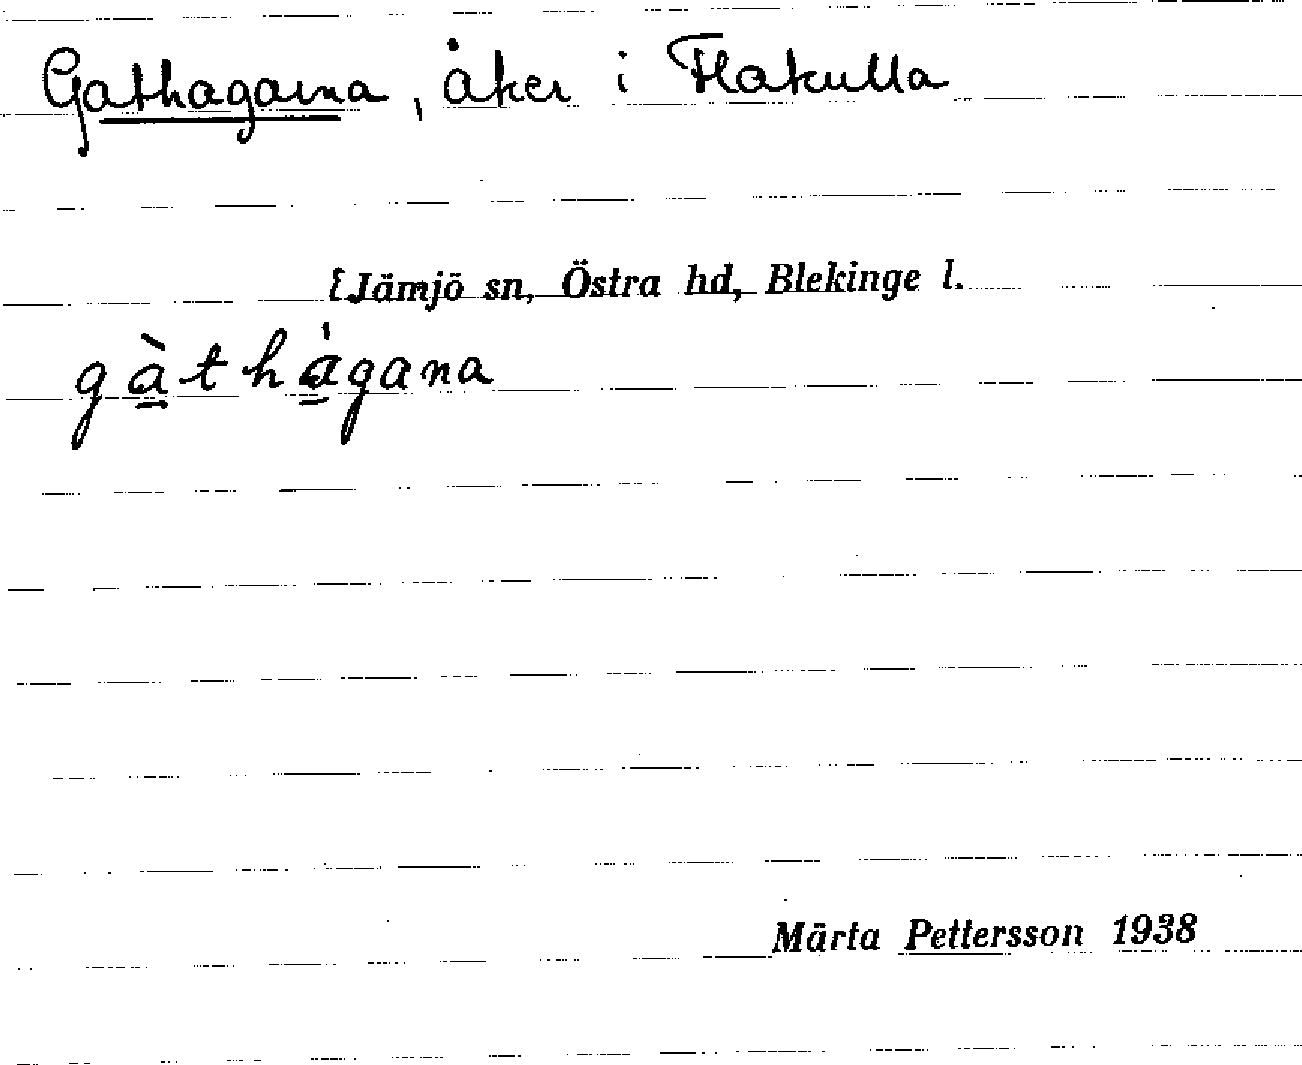 Gathagarna, åker i Flakulla
i Jämjö sn, Östra hd, Blekinge l.
gàthágana
Märta Pettersson 1938